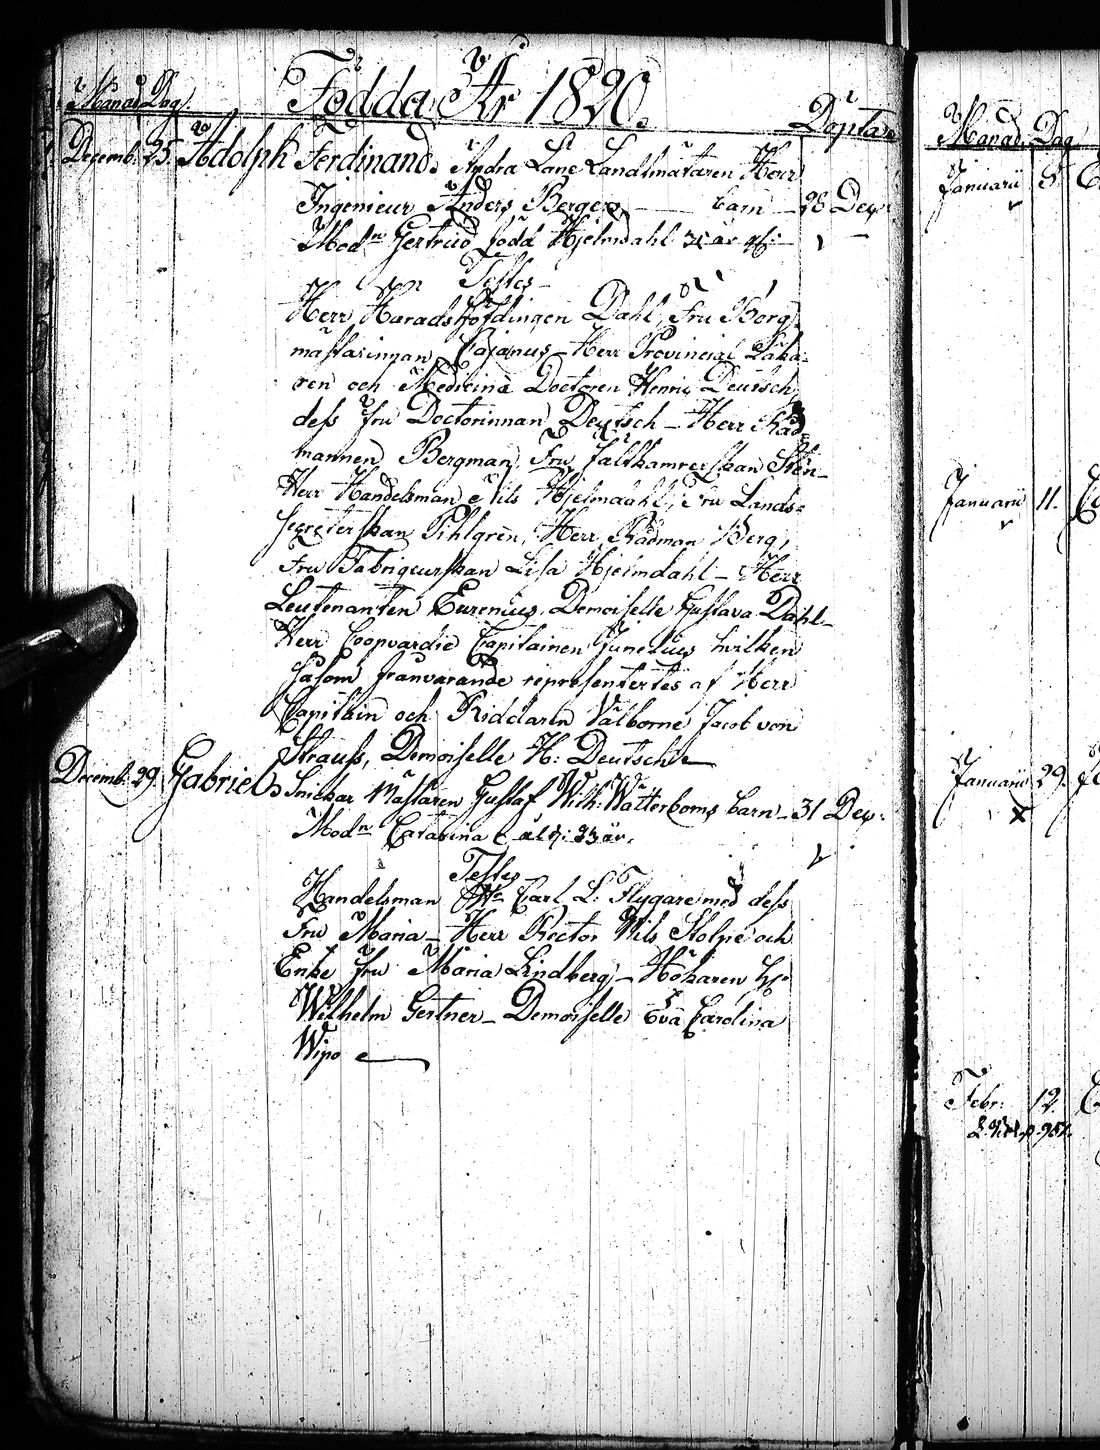 Månad Dag. Födda År 1820. Döpta
Decemb. 25. Adolph Ferdinand. Andra Lane Landtmätaren Herr
Ingenieur Anders Bergers barn 28 Dec.
Modn Gertrud född Hjelmdahl 31 år
Testes
Herr Häradshöfdingen Dahl, Fru Borg
mästarinnan Cajanus - Herr Provincial Läka-
ren och Medicinæ Doctoren Henric Deutsch,
dess fru Doctorinnan Deutsch - Herr Råd-
mannen Bergman, Fru fältkamrerskan Stén -
Herr Handelsman Nils Hjelmdahl, Fru Lands-
secreterskan Pihlgrèn, Herr Rådman Berg,
Fru Fabriqeurskan Lisa Hjelmdahl - Herr
Leutenanten Eurenius, Demoiselle Gustava Dahl -
Herr Coopvardie Capitainen Junelius hvilken
såsom frånvarande representertes af Herr
Capitain och Riddaren Välborne Jacob von
Strauss, Demoiselle H: Deutsch
Decemb. 29. Gabriel Snickar Mästaren Gustaf Wilh: Wätterboms barn - 31 Dec.
Modn Catarina ålder: 33 år.
Testes
Handelsman Carl L: Flygare med dess
Fru Maria - Herr Rector Nils Stolpe och
Enke fru Maria Lindberg - Hökaren Hr
Wilhelm Gertner - Demoiselle Eva Carolina
Wipo
Månad Dag
Januarii 5.
Januarii 11.
Januarii 29.
x
Febr: 12.